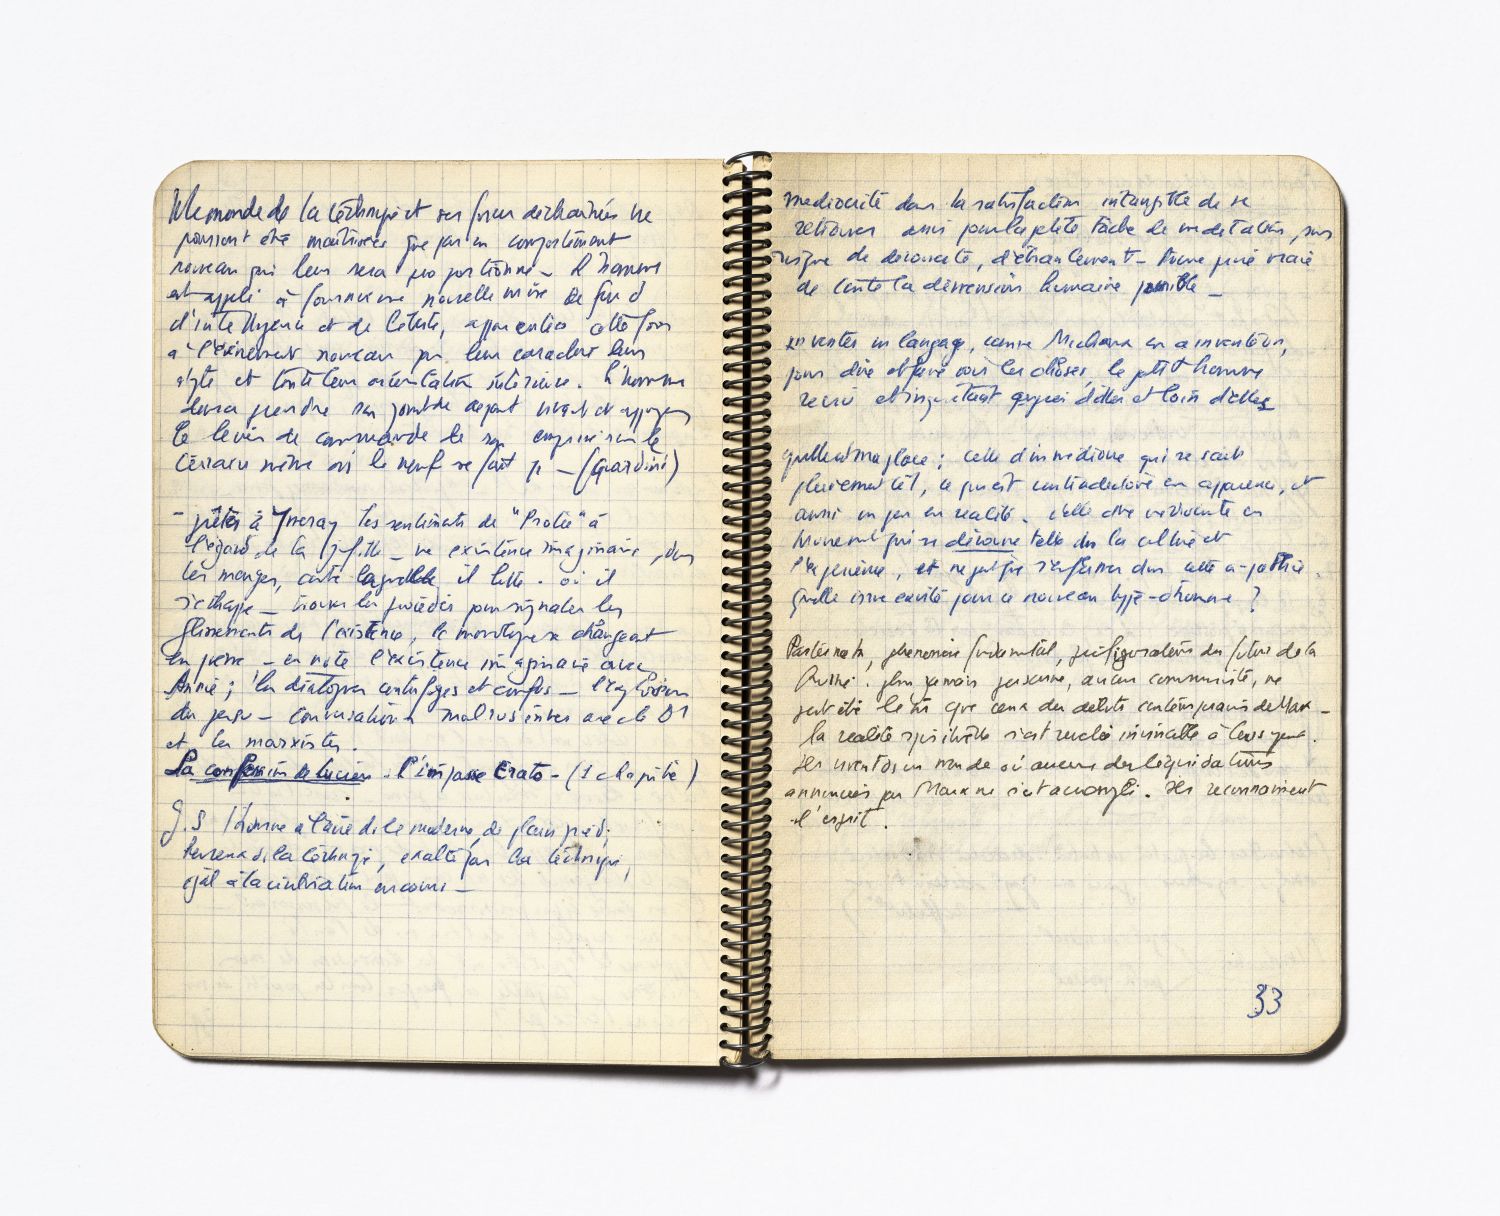 Le monde de la technique et ses forces déchainées ne
pourront être maitrisées que par un comportement
nouveau qui leur sera proportionné — L'homme
est appelé à fournir une nouvelle mise de fond
d'intelligence et de liberté, apparentées cette fois
à l'événement nouveau par leur caractère leur
style et toute leur orientation intérieure. L'homme
devra prendre son point de départ vivant et appuyer
le levier de commande de son emprise sur le
terrain même où le neuf se fait jour — (Guardini)
- prêter à les sentiments de "Protée" à
l'égard de la — une existence imaginaire, dans
les marges, contre laquelle il lutte. où il
s'échappe — trouver les procédés pour signaler les
glissements de l'existence, le monologue se changeant
en — en note l'existence imaginaire avec
Annie ; les dialogues centrifuges et confus — l'explosion
du — conversations avec le Dr
et les marxistes.
La confession de Lucien. L'impasse Erato - (1 chapitre)
G.S l'homme à l'aise ds le moderne, de plain pied,
ds la technique, exalté par la technique,
égal à la civilisation en cours —
médiocrité dans la satisfaction intangible de se
retrouver assis pour la petite tâche de médiation, sans
risque de, d'ébranlement — privé
de toute la dimension humaine possible —
inventer un langage, comme Michaux en a inventé un,
pour dire et faire voir les choses, le petit homme
et inquiétant auprès d'elles et loin d'elles
quelle est ma place ; celle d'un médiocre qui se sait
pleinement tel, ce qui est contradictoire en apparence, et
aussi un peu en réalité. celle d'une médiocrité en
mouvement qui se découvre telle ds la culture et
l'expérience, et ne peut pas s'enfermer dans cette.
Quelle issue existe pour ce nouveau type d'homme ?
Pasternak, phénomène fondamental, préfiguration du futur de la
Russie. plus jamais personne, aucune communauté, ne
que ceux des contemporains de Marx —
la réalité spirituelle s'est révélée invincible à leurs yeux.
Ils vivent ds un monde où aucune des liquidations
annoncées par Marx ne s'est accomplie. Ils reconnaissent
l'esprit.
33